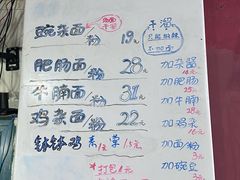 豌杂面
粉 19元
干溜
肥肠面
粉 28元
加杂酱
加肥肠
牛腩面
粉 31元
加牛腩
28元
鸡杂面
粉 22元
加鸡杂
钵钵鸡 素1元 荤1.5元
加面/粉
3元
*打包1元
加豌豆